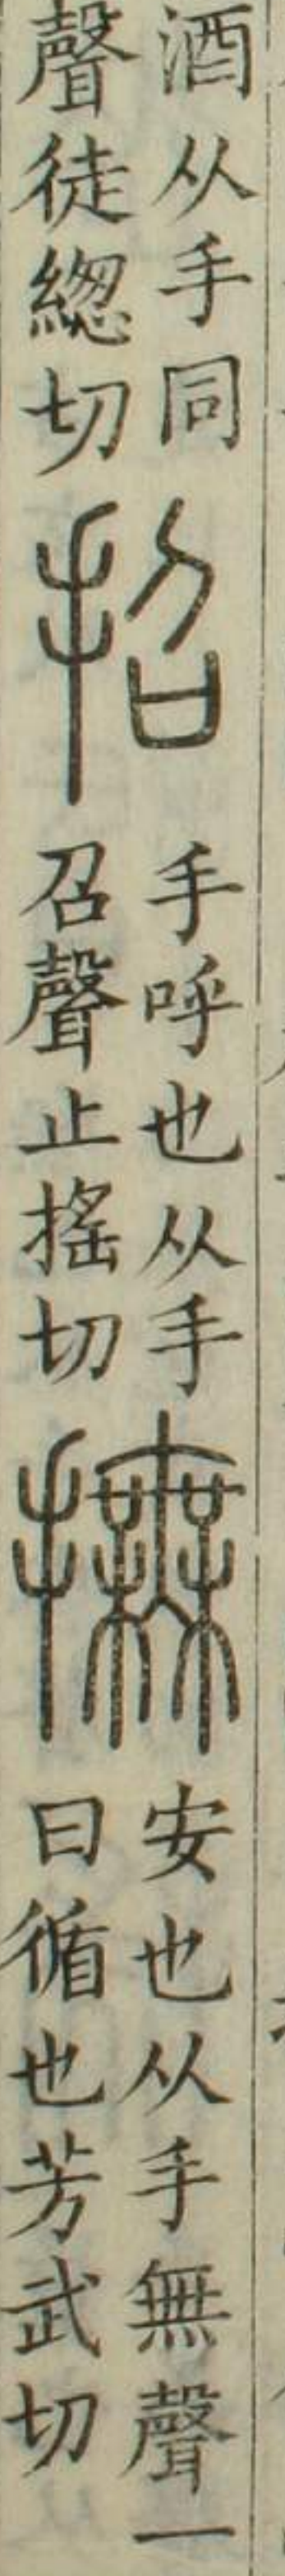 酒从手同
聲徒緫切
招
手呼也从手
召聲止搖切
撫
安也从手無聲一
曰循也芳武切